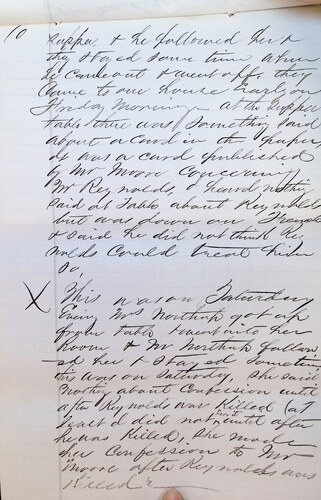 10
supper, & he followed her &
they stayed some time, when
he came out & went off, they
came to our house early on
Friday Morning at the supper
table there was something said
about a card in the paper,
it was a card published
by Mr Moore concerning
Mr Reynolds, I heard nothing
said at table about Reynolds
but was down on French
& said he did not think Rey
nolds could treat him
so,
X This was on Saturday
Evening Mrs Northrup got up
from table & went into her
room & Mr Northrup follow
ed her & stayed sometime,
this was on Saturday, she said
nothing about confession until
after Reynolds was killed (at
least I did not until after
he was killed), she made
her confession to Mr
Moore after Reynolds was
killed